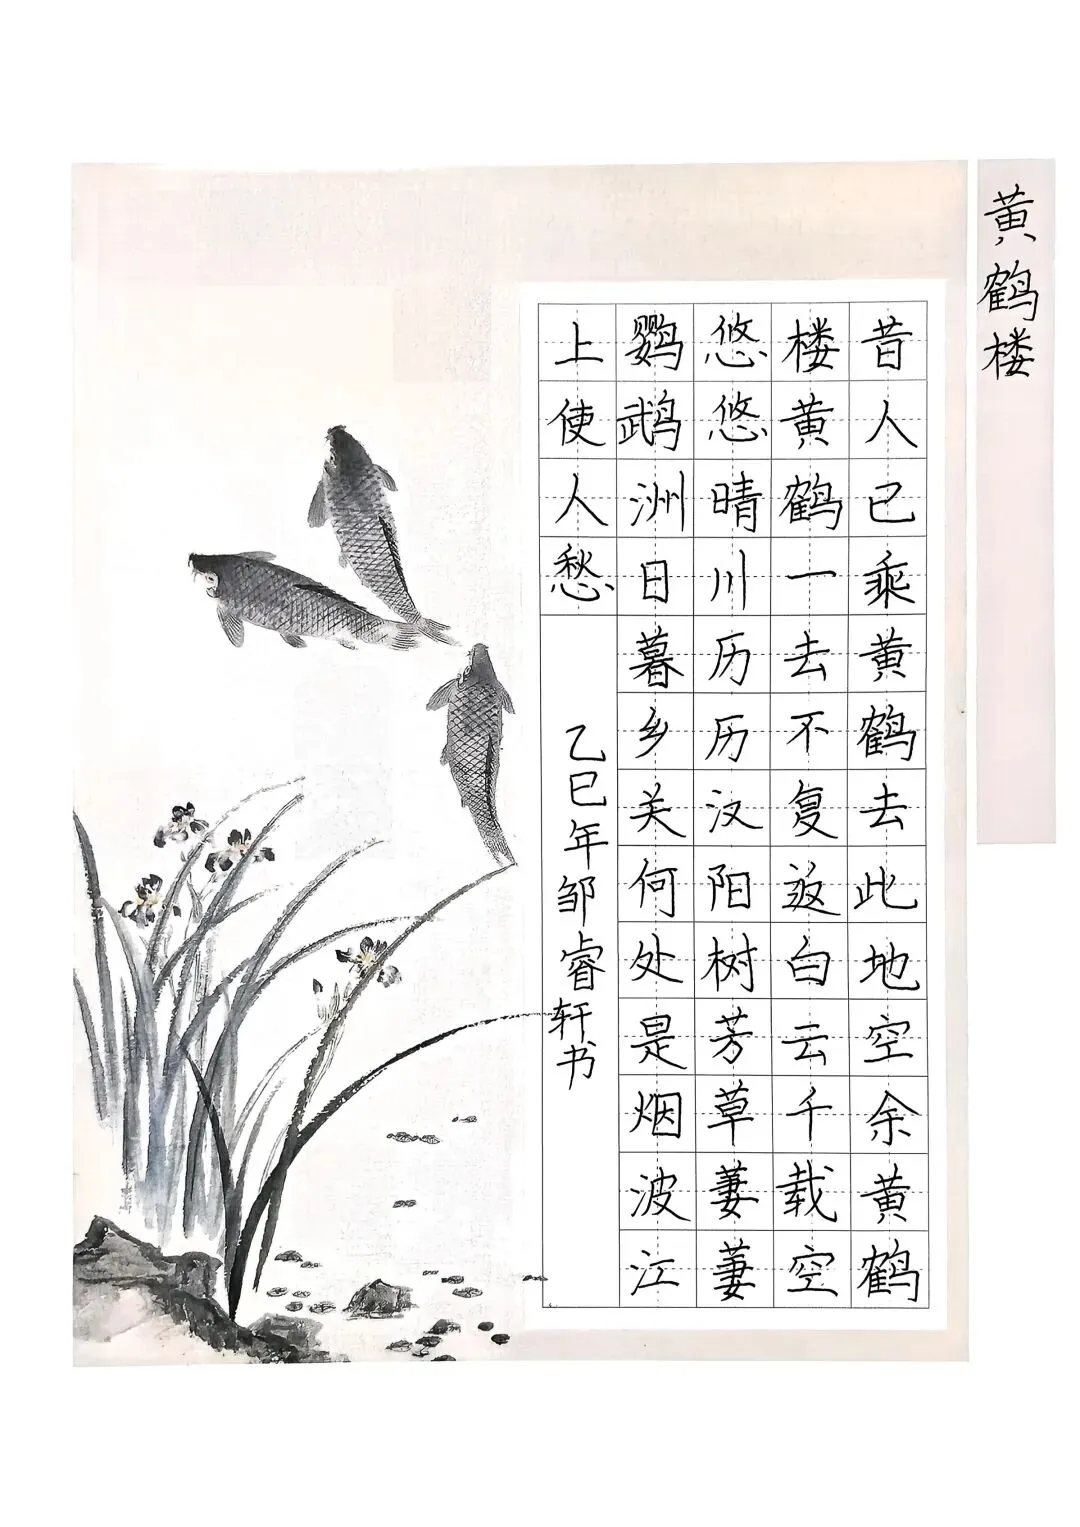 黄鹤楼
昔人已乘黄鹤去此地空余黄鹤
楼黄鹤一去不复返白云千载空
悠悠晴川历历汉阳树芳草萋萋
鹦鹉洲日暮乡关何处是烟波江
上使人愁
乙巳年邹睿轩书